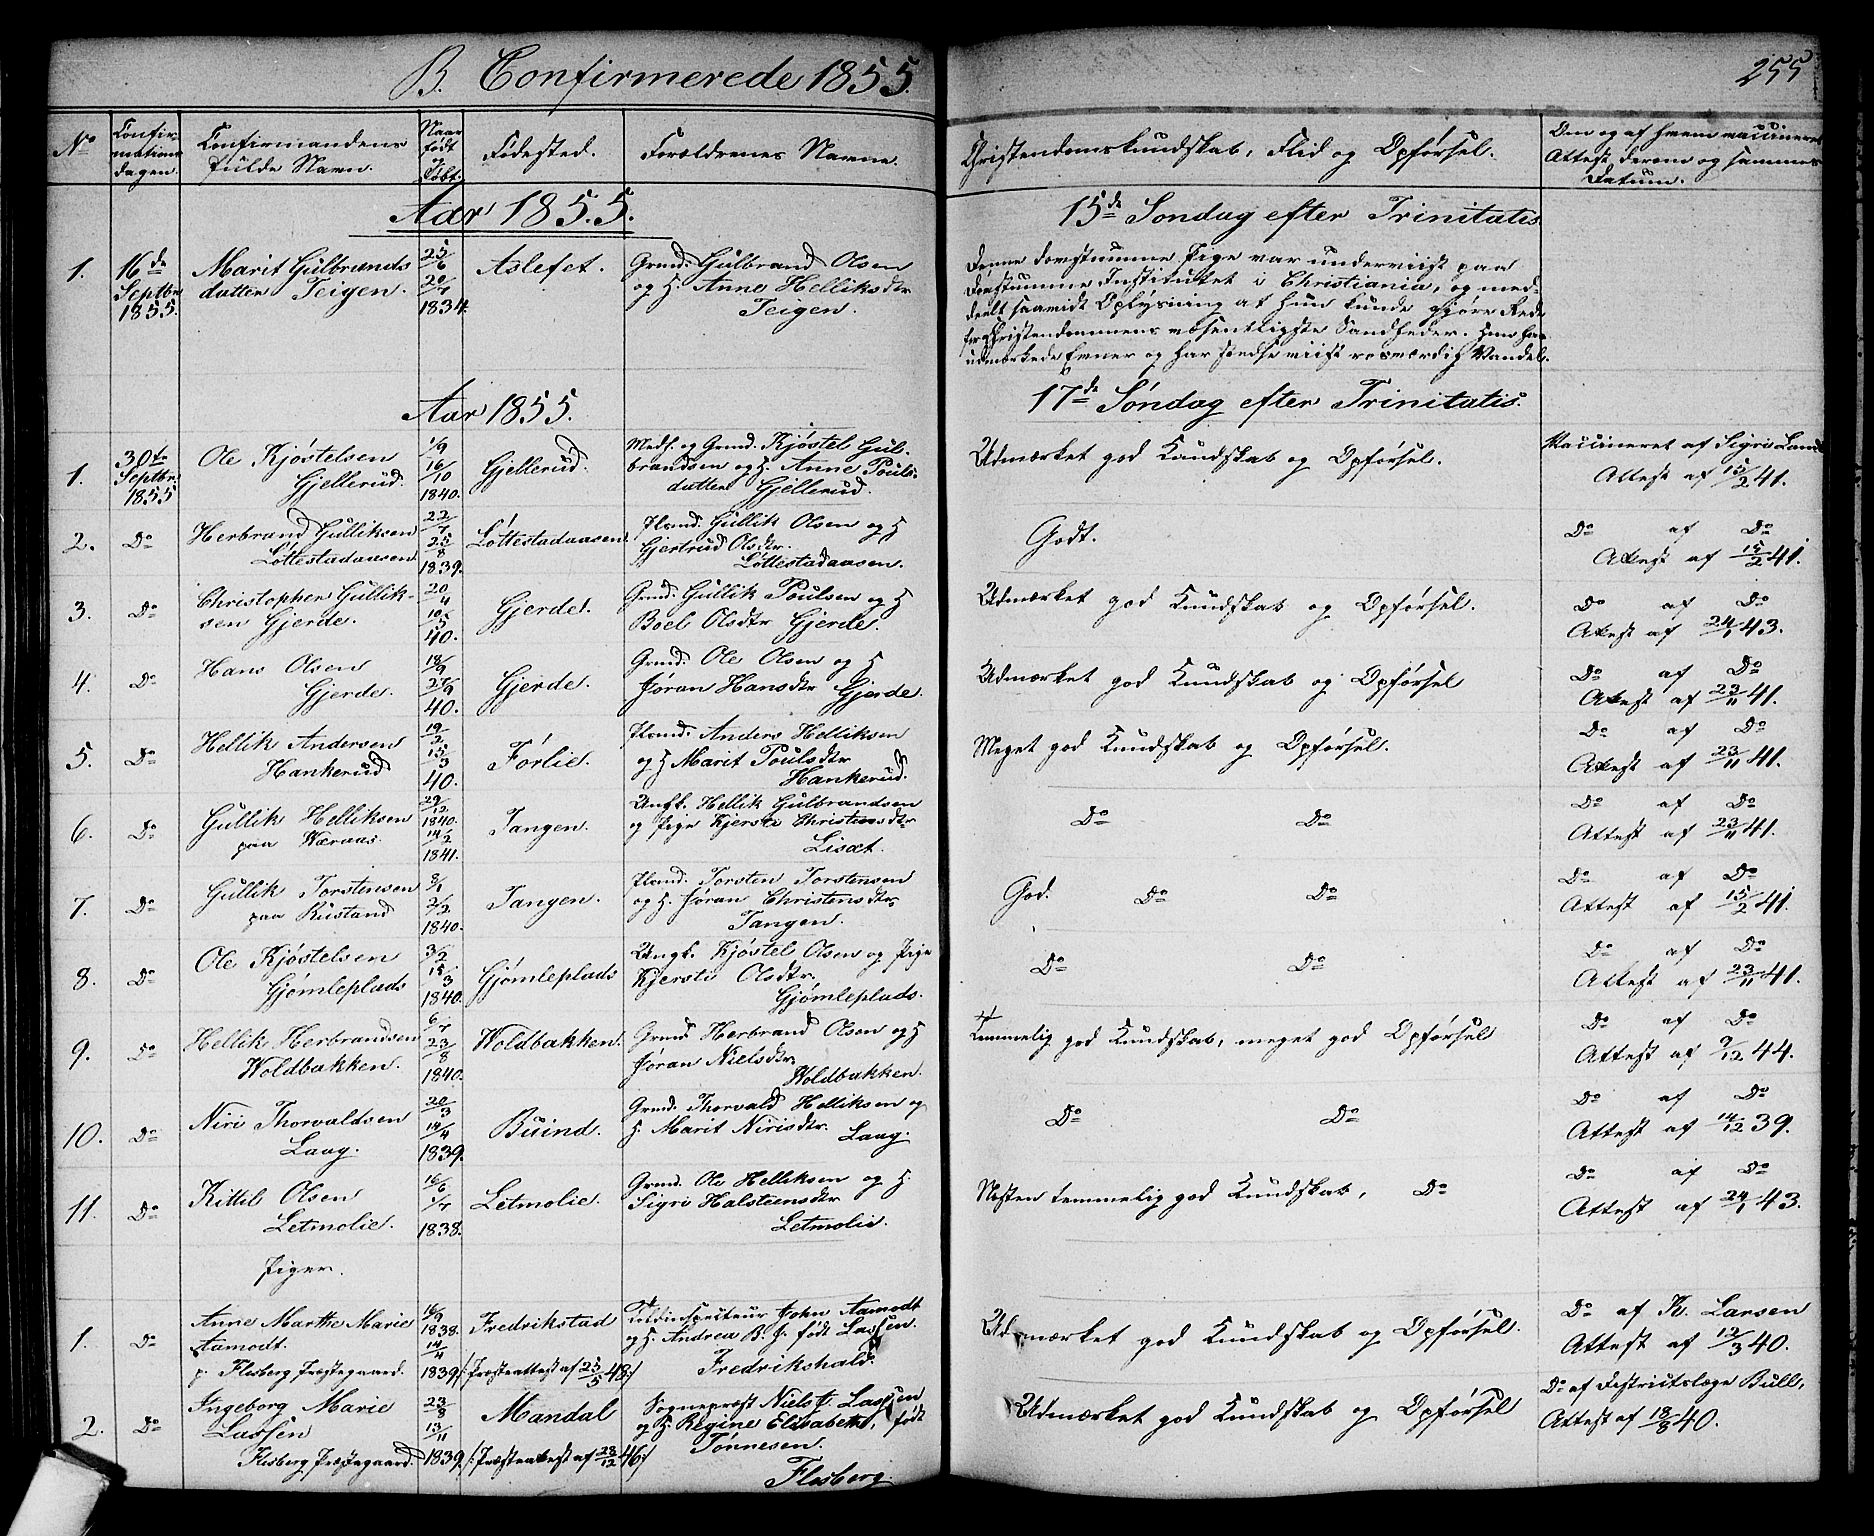 B. Confirmerede 1855.
255
No
Confir-
mations
dagen.
Confirmandens
fulde Navn.
Naar
født
og
døbt.
Fødested.
Forældrenes Navne.
Christendomskundskab, Flid og Opførsel.
Om og af hvem vaccineret
Attest derom og sammes
Datum.
Aar 1855.
15de Søndag efter Trinitatis
1.
16de
Septbr
1855.
Marit Gulbrands
datter Teigen.
25/6
20/7
1834.
Aslefet.
Grmd. Gulbrand Olsen
og H. Anne Helliksdtr
Teigen.
Denne døvstumme Pige var underviist paa
Døvstumme Institutet i Christiania, og med-
deelt saavidt Oplysning at hun kunde gjøre Rede
for Christendommens væsentligste Sandheder. Hun har
udmærkede Evner og har stedse viist rosværdig Vandel.
Aar 1855.
17de Søndag efter Trinitatis.
1.
30te
Septbr
1855
Ole Kjøstelsen
Gjellerud.
1/9
16/10
1840.
Gjellerud.
Medh. og Grmd. Kjøstel Gul-
brandsen og H. Anne Pouls-
datter Gjellerud.
Udmærket god Kundskab og Opførsel.
Vaccineret af Sigri Land
Attest af 15/2 41.
2. Do
Herbrand Gulliksen
Løttestadaasen
22/7
25/8
1839.
Løttestadaasen.
Hsmd. Gullik Olsen og H
Gjertrud Olsdtr.
Løttestadaasen.
Godt.
Do af Do
Attest af 15/2 41.
3. Do
Christopher Gullik-
sen Gjerde.
20/4
10/5
40.
Gjerde.
Grmd. Gullik Poulsen og H
Boel Olsdtr Gjerde.
Udmærket god Kundskab og Opførsel.
Do af Do
Attest af 24/1 43.
4. Do
Hans Olsen
Gjerde.
18/9
27/9
40.
Gjerde.
Grmd. Ole Olsen og H
Jøran Hansdtr Gjerde.
Udmærket god Kundskab og Opførsel
Do af Do
Attest af 23/11 41.
5. Do
Hellik Andersen
Hankerud
19/2
15/3
40.
Førlie.
Hsmd. Anders Helliksen
og H Marit Poulsdtr
Hankerud.
Meget god Kundskab og Opførsel.
Do af Do
Attest af 23/11 41.
6. Do
Gullik Helliksen
paa Væraas.
29/12
1840.
14/2
1841.
Tangen.
Ungk. Hellik Gulbrandsen
og Pige Kjersti Christensdtr
Lisæt.
Do Do
Do af Do
Attest af 23/11 41.
7. Do
Gullik Torstensen
paa Rustand
8/1
2/2
1840.
Tangen.
Hsmd. Torsten Torstensen
og H. Jøran Christensdtr
Tangen.
God. Do Do
Do af Do
Attest af 15/2 41.
8. Do
Ole Kjøstelsen
Gjømleplads
3/2
15/3
1840.
Gjømleplads
Ungk. Kjøstel Olsen og Pige
Kjersti Olsdtr.
Gjømleplads.
Do Do
Do af Do
Attest af 23/11 41.
9. Do
Hellik Herbrandsen
Woldbakken.
6/7
23/8
1840.
Woldbakken.
Grmd. Herbrand Olsen og H
Jøran Nielsdtr
Woldbakken.
Temmelig god Kundskab, meget god Opførsel
Do af Do
Attest af 9/12 44.
10. Do
Niri Thorvaldsen
Laag.
20/3
14/4
1839.
Buind.
Grmd. Thorvald Helliksen og
H. Marit Nirisdtr. Laag.
Do Do
Do af Do
Attest af 14/12 39.
11. Do
Kittil Olsen
Letmolie.
16/6
1/7
1838.
Letmolie.
Grmd. Ole Helliksen og H.
Sigri Halstensdtr
Letmolie.
Næsten temmelig god Kundskab, Do
Do af Do
Attest af 24/1 43.
Piger.
1. Do
Anne Marthe Marie
Aamodt.
p. Flesberg Præstegaard.
16/9
1838.
14/4
1839
Fredrikstad
/: Præsteattest af 25/5 48:/
Toldinspecteur John Aamodt
og H. Andrea B. J. født Lassen.
Fredrikshald.
Udmærket god Kundskab og Opførsel.
Do af K. Larsen
Attest af 12/3 40.
2. Do
Ingeborg Marie
Lassen
Flesberg Præstegaard
23/8
13/11
1839.
Mandal
/: Præsteattest af 23/12 46:/
Sognepræst Niels J. Lassen
og H. Regine Elisabeth, født
Tønnesen.
Flesberg.
Udmærket god Kundskab og Opførsel
Do af Districtslæge Bull,
Attest af 18/8 40.